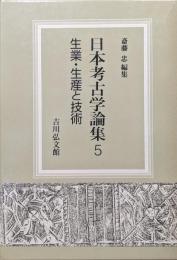 斎藤 忠編集
日本考古学論集5
生業・生産と技術
吉川弘文館